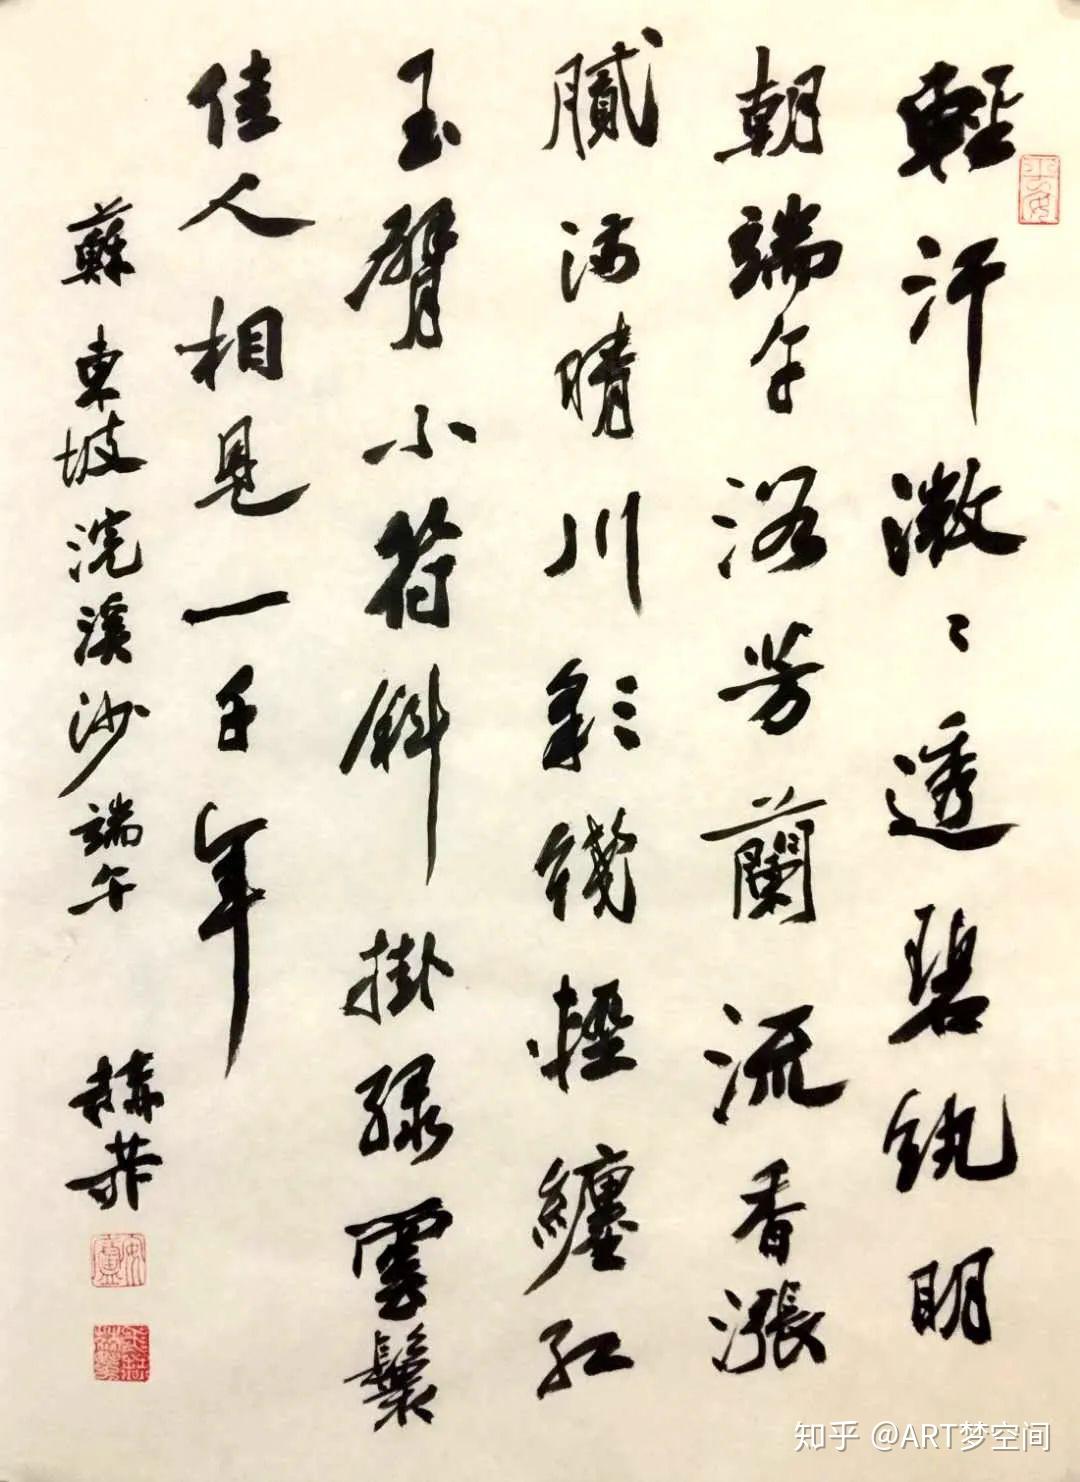 輕汗微〻透碧紈明
朝端午浴芳蘭流香漲
膩滿晴川彩綫輕纏紅
玉臂小符斜掛緑雲鬟
佳人相見一千年
蘇東坡浣溪沙端午 赫
平安
知乎 @ART梦空间